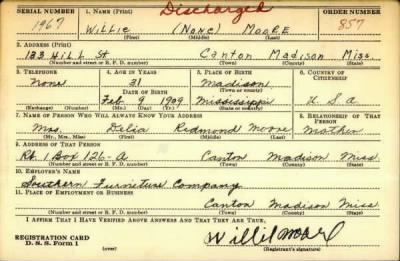 Discharged
SERIAL NUMBER 1. NAME (Print) ORDER NUMBER
1967 WILLIE (NONC) MOORE 857
(First) (Middle) (Last)
2. ADDRESS (Print)
133 HILL St Canton Madison Miss.
(Number and street or R. F. D. number) (Town) (County) (State)
3. TELEPHONE 4. AGE IN YEARS 5. PLACE OF BIRTH 6. COUNTRY OF CITIZENSHIP
None 31 Madison
(Town or county)
DATE OF BIRTH
Feb 9 1909 Mississippi U.S.A
(Exchange) (Number) (Mo.) (Day) (Yr.) (State or country)
7. NAME OF PERSON WHO WILL ALWAYS KNOW YOUR ADDRESS 8. RELATIONSHIP OF THAT PERSON
Mrs. Delia Redmond Moore Mother
(Mr., Mrs., Miss) (First) (Middle) (Last)
9. ADDRESS OF THAT PERSON
Rt. 1 Box 126-A Canton Madison Miss
(Number and street or R. F. D. number) (Town) (County) (State)
10. EMPLOYER'S NAME
Southern Furniture Company
11. PLACE OF EMPLOYMENT OR BUSINESS
Canton Madison Miss
(Number and street or R. F. D. number) (Town) (County) (State)
I AFFIRM THAT I HAVE VERIFIED ABOVE ANSWERS AND THAT THEY ARE TRUE.
REGISTRATION CARD
D. S. S. Form 1 (over) (Registrant's signature)